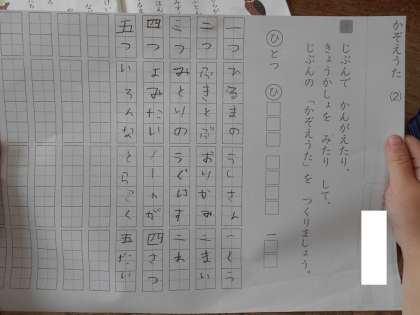 かぞえうた (2)
じぶんで かんがえたり、
きょうかしょを みたり して、
じぶんの 「かぞえうた」を つくりましょう。
ひとつ ひ 一
一つ うしさん 一とう
二つ ふきとぶ おりがみ 二まい
三つ みどりの うぐいす 三わ
四つ よみたい ノートが 四さつ
五つ いろんな とらっく 五だい